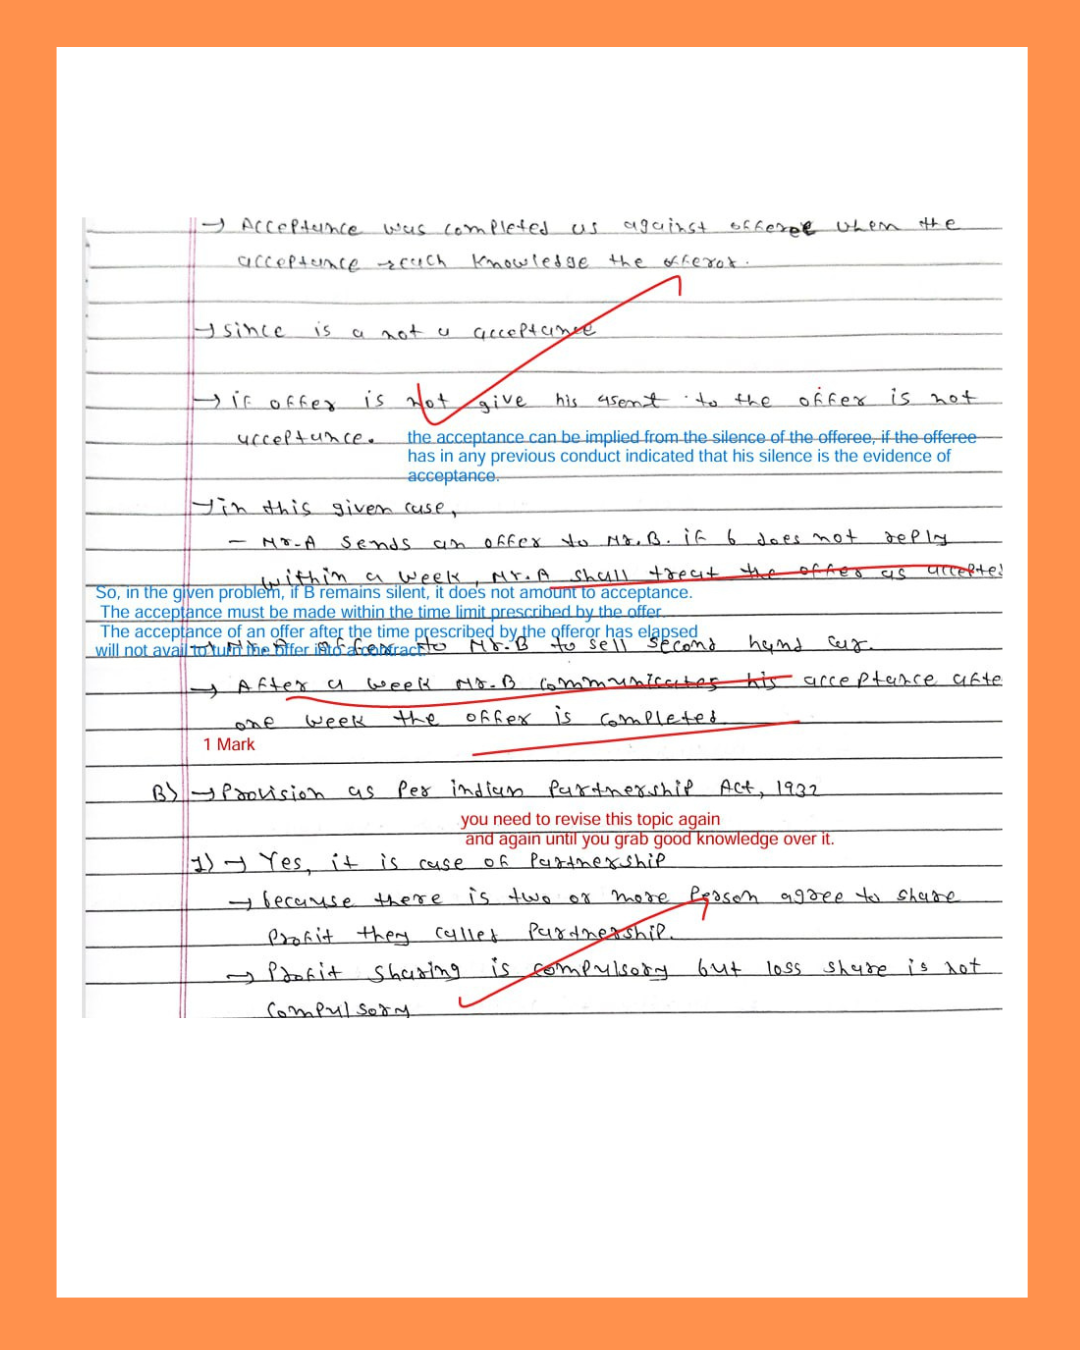 → Acceptance was completed as against offeree when the
acceptance reach knowledge the offeror.
→ since is a not a acceptance
→ if offer is not give his asent to the offer is not
acceptance.
the acceptance can be implied from the silence of the offeree, if the offeree
has in any previous conduct indicated that his silence is the evidence of
acceptance.
→ in this given case,
- Mr.A sends an offer to Mr.B. if b does not reply
within a week, Mr.A shall treat the offer as accepted
So, in the given problem, if B remains silent, it does not amount to acceptance.
The acceptance must be made within the time limit prescribed by the offer.
The acceptance of an offer after the time prescribed by the offeror has elapsed
will not avail to turn the offer into a contract.
offer to Mr.B to sell second hand car.
→ After a week Mr.B communicates his acceptance afte
one week the offer is completed
1 Mark
B) → Provision as per indian Partnership Act, 1932
you need to revise this topic again
and again until you grab good knowledge over it.
1) → Yes, it is case of Partnership
→ because there is two or more Person agree to share
Profit they called Partnership.
→ Profit sharing is compulsory but loss share is not
compulsory